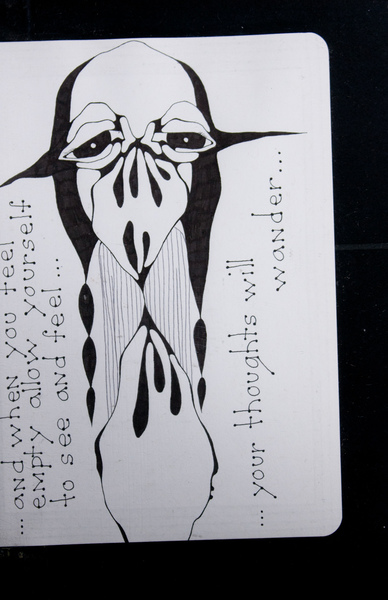 ...and when you feel
empty allow yourself
to see and feel...
... your thoughts will
wander...